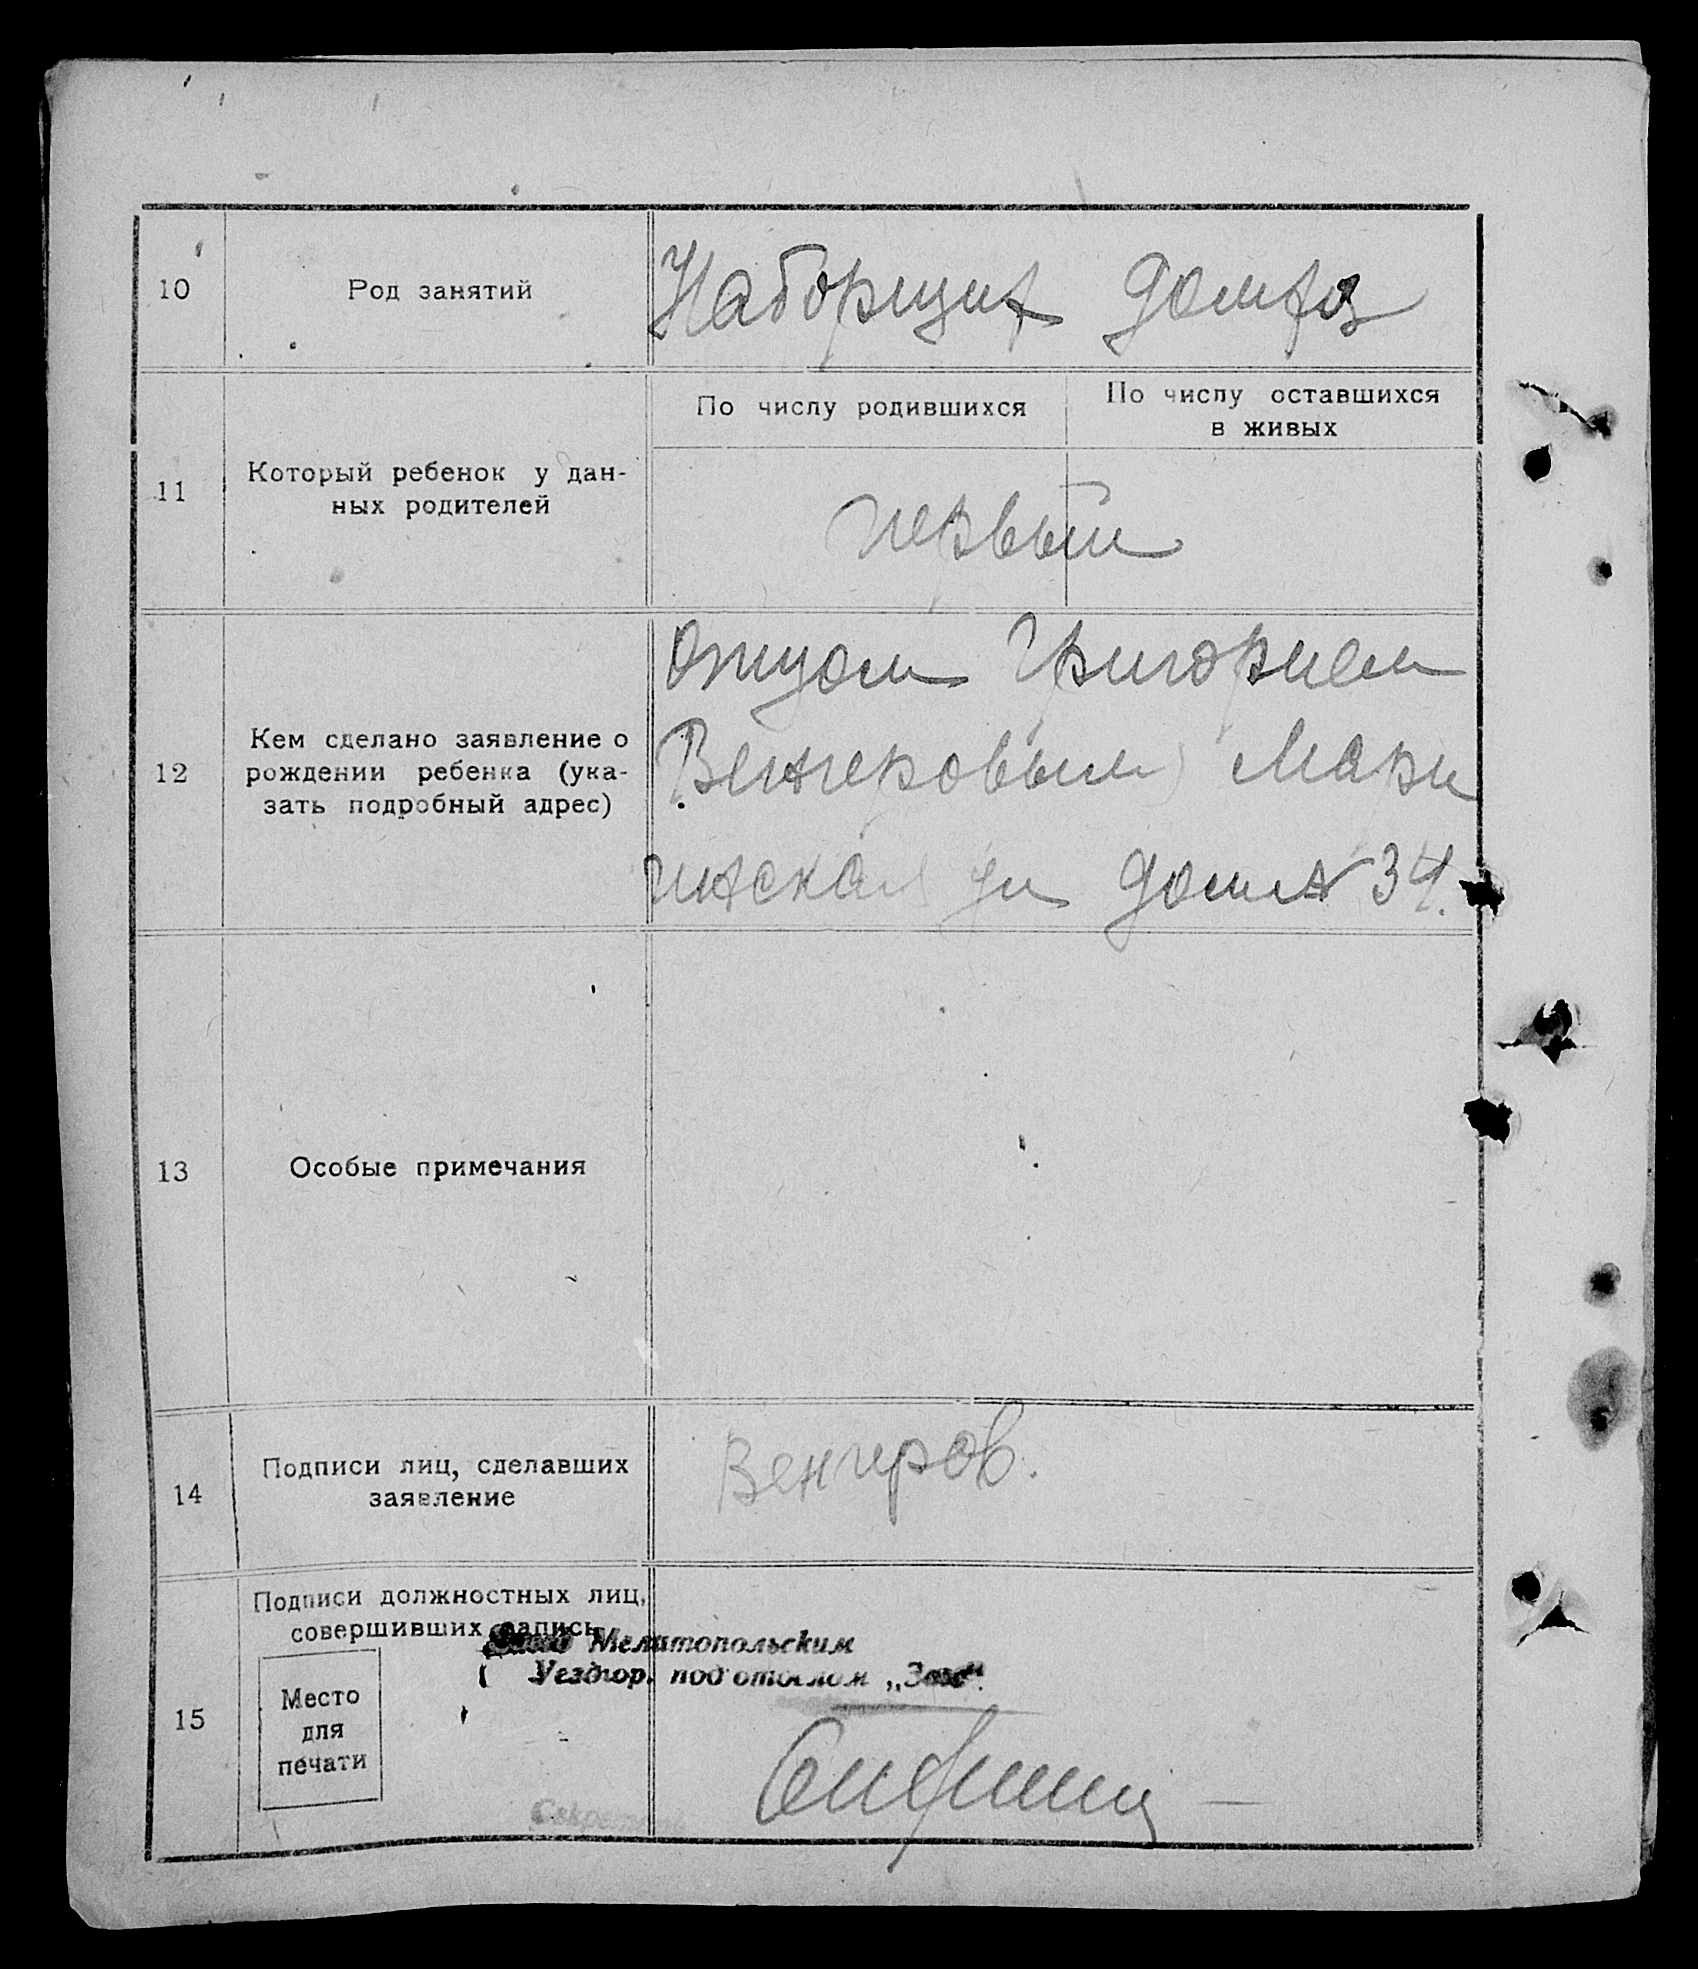 10
Род занятий
Наборщик домхоз
По числу родившихся
По числу оставшихся
в живых
11
Который ребенок у дан-
ных родителей
первый
12
Кем сделано заявление о
рождении ребенка (ука-
зать подробный адрес)
Отцом Григорием
Венгеровым Мари
инская ул дом № 34.
13
Особые примечания
14
Подписи лиц, сделавших
заявление
Венгеров.
15
Подписи должностных лиц,
совершивших запись
Мелитопольским
Уездгор. подотделом „Загс“
Место
для
печати
Секретарь